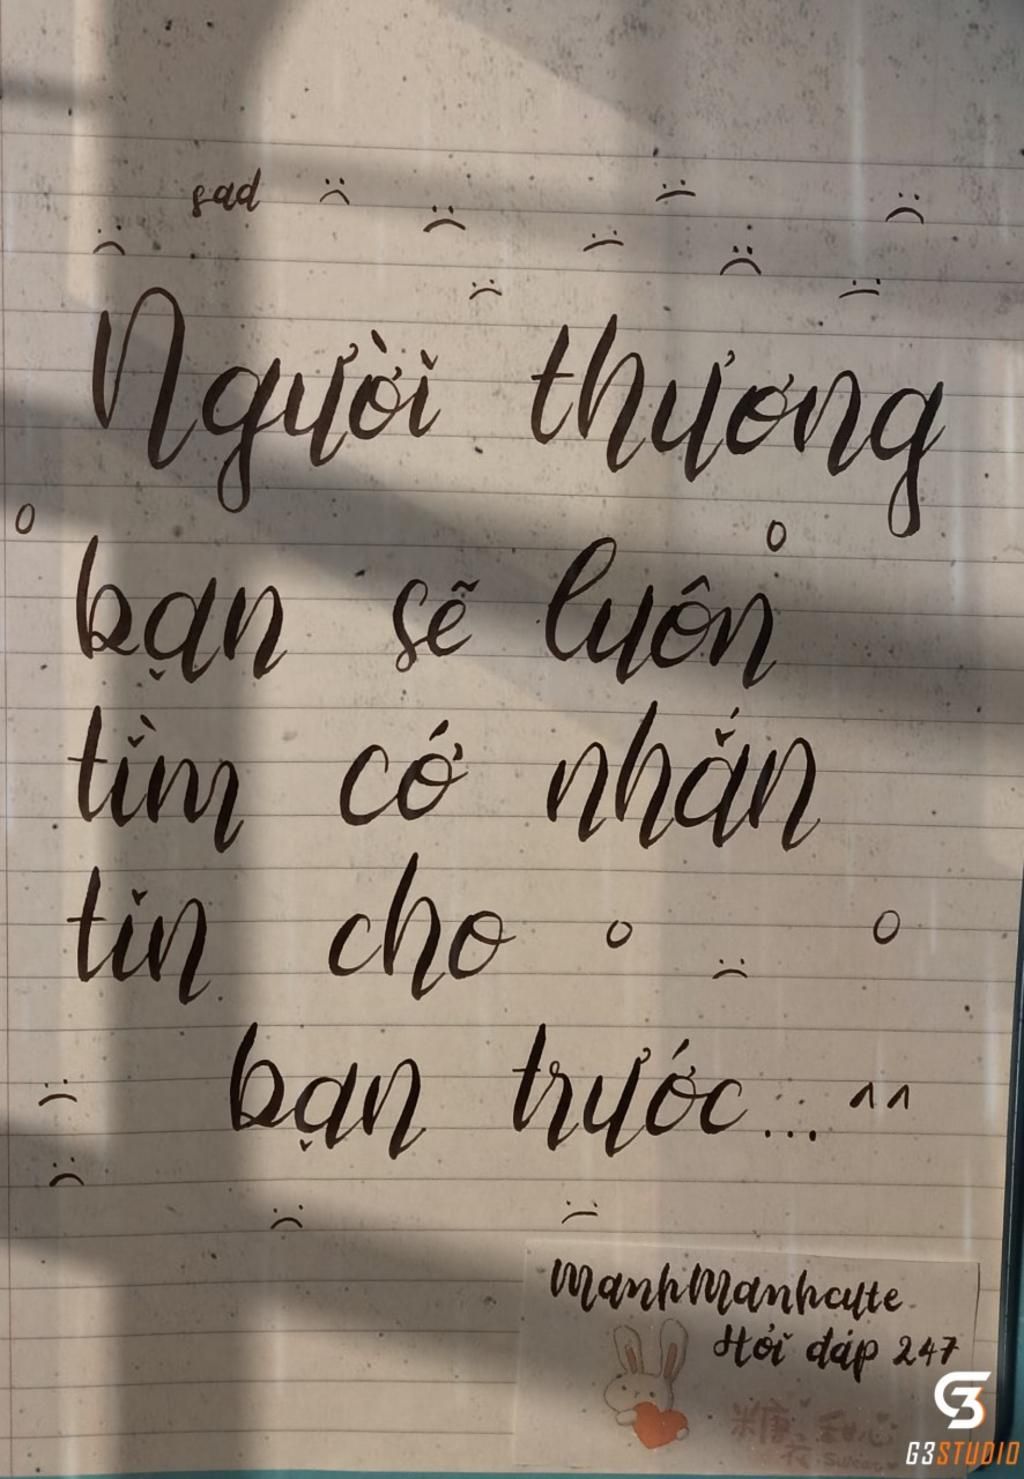 sad
Người thương
bạn sẽ luôn
tìm cớ nhắn
tin cho
bạn trước... ^^
ManhManhcute
Hỏi đáp 247
G3STUDIO